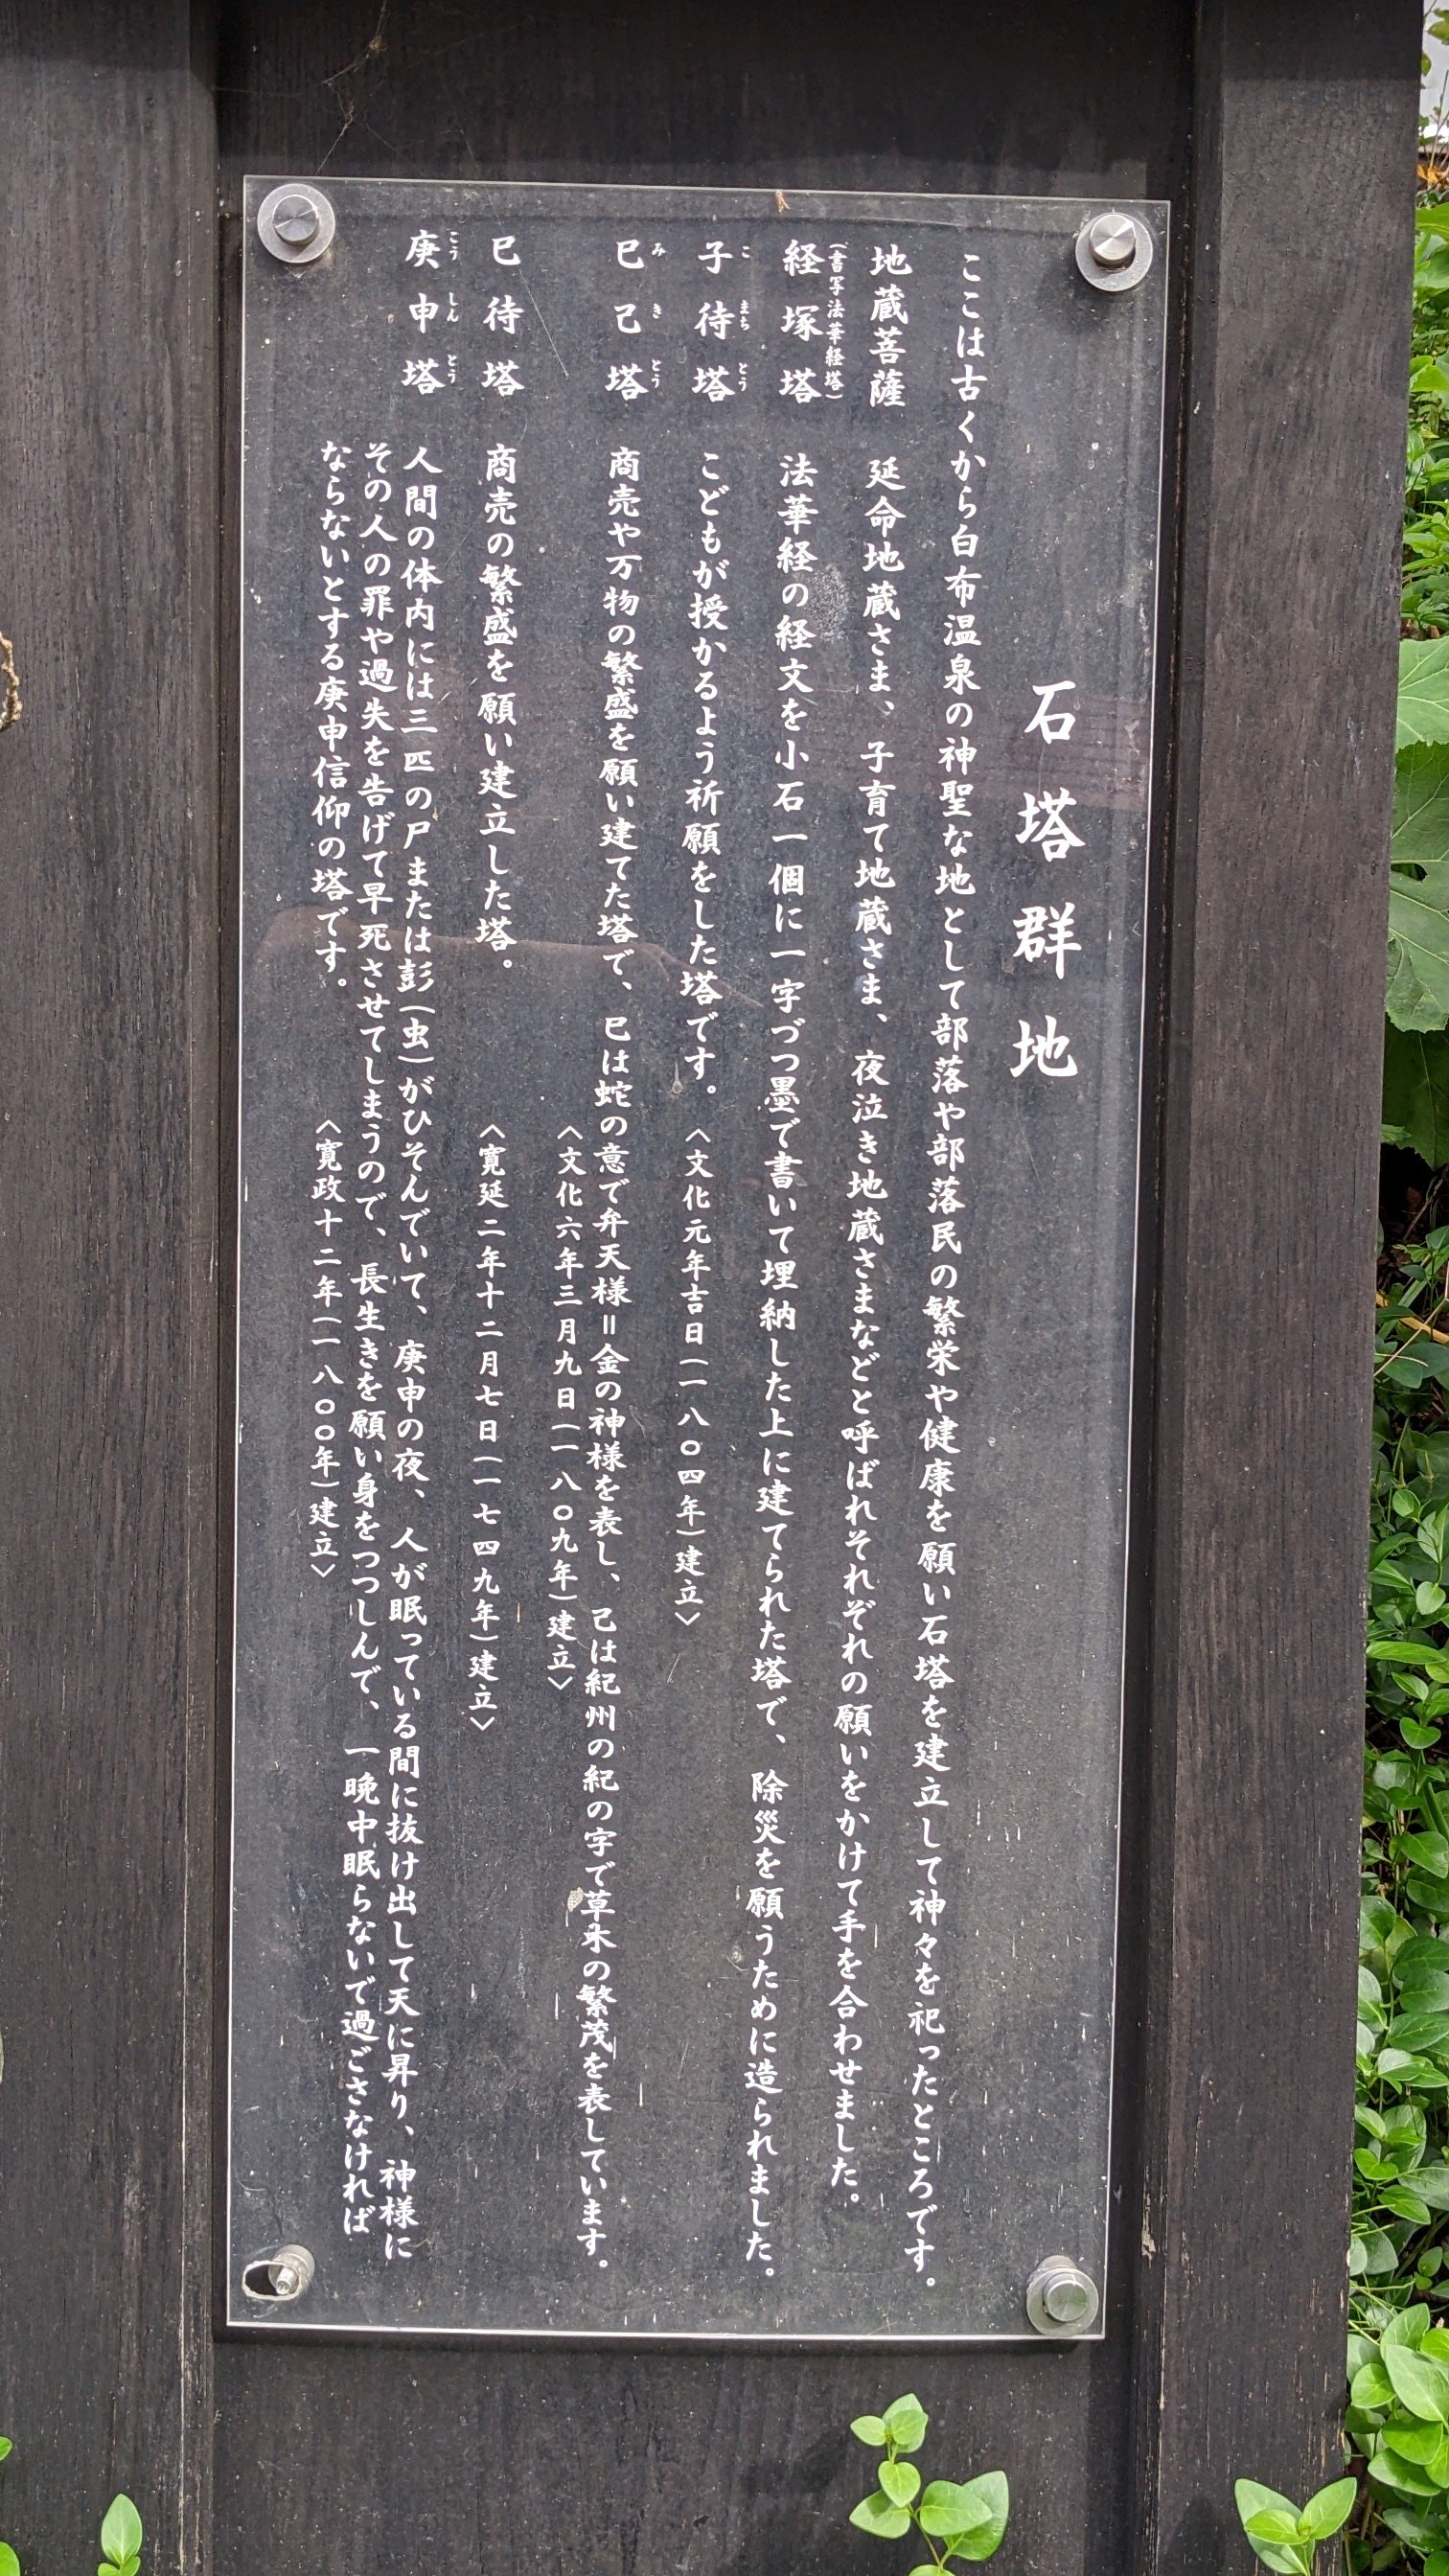 石塔群地
ここは古くから白布温泉の神聖な地として部落や部落民の繁栄や健康を願い石塔を建立して神々を祀ったところです。
地蔵菩薩 延命地蔵さま、子育て地蔵さま、夜泣き地蔵さまなどと呼ばれそれぞれの願いをかけて手を合わせました。
(書写法華経塔)
経塚塔 法華経の経文を小石一個に一字づつ墨で書いて埋納した上に建てられた塔で、除災を願うために造られました。
こまちとう
子待塔 こどもが授かるよう祈願をした塔です。 〈文化元年吉日(一八〇四年)建立〉
みきとう
巳己塔 商売や万物の繁盛を願い建てた塔で、巳は蛇の意で弁天様=金の神様を表し、己は紀州の紀の字で草木の繁茂を表しています。
〈文化六年三月九日(一八〇九年)建立〉
巳待塔 商売の繁盛を願い建立した塔。 〈寛延二年十二月七日(一七四九年)建立〉
こうしんとう
庚申塔 人間の体内には三匹の尸または彭(虫)がひそんでいて、庚申の夜、人が眠っている間に抜け出して天に昇り、神様に
その人の罪や過失を告げて早死させてしまうので、長生きを願い身をつつしんで、一晩中眠らないで過ごさなければ
ならないとする庚申信仰の塔です。 〈寛政十二年(一八〇〇年)建立〉